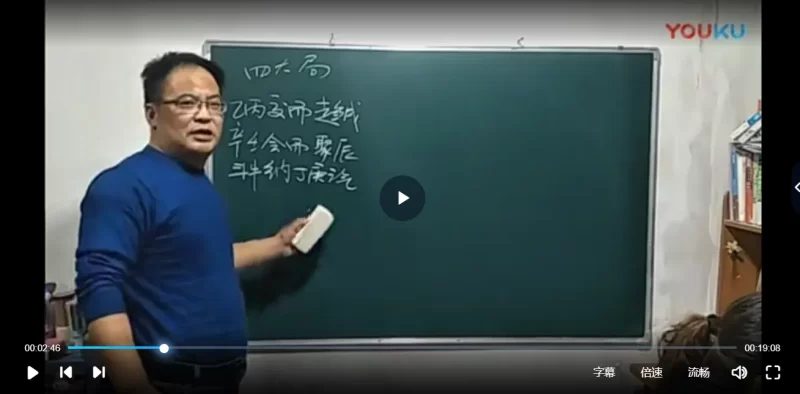 YOUKU
四大局
乙丙交而趋戌
辛壬会而聚辰
斗牛纳丁庚之气
00:02:46
00:19:08
字幕
倍速
流畅